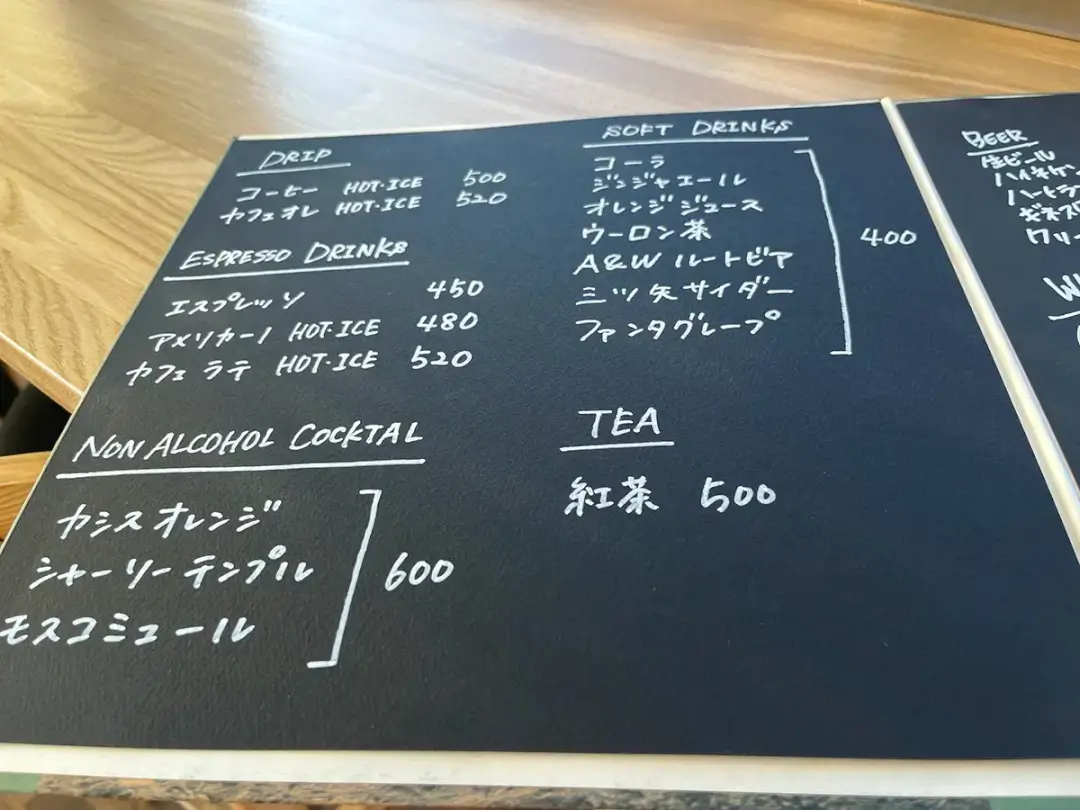 DRIP
コーヒー HOT・ICE 500
カフェオレ HOT・ICE 520
ESPRESSO DRINKS
エスプレッソ 450
アメリカーノ HOT・ICE 480
カフェラテ HOT・ICE 520
NON ALCOHOL COCKTAL
カシスオレンジ
シャーリーテンプル
モスコミュール
600
SOFT DRINKS
コーラ
ジンジャエール
オレンジジュース
ウーロン茶
A&W ルートビア
三ツ矢サイダー
ファンタグレープ
400
TEA
紅茶 500
BEER
生ビール